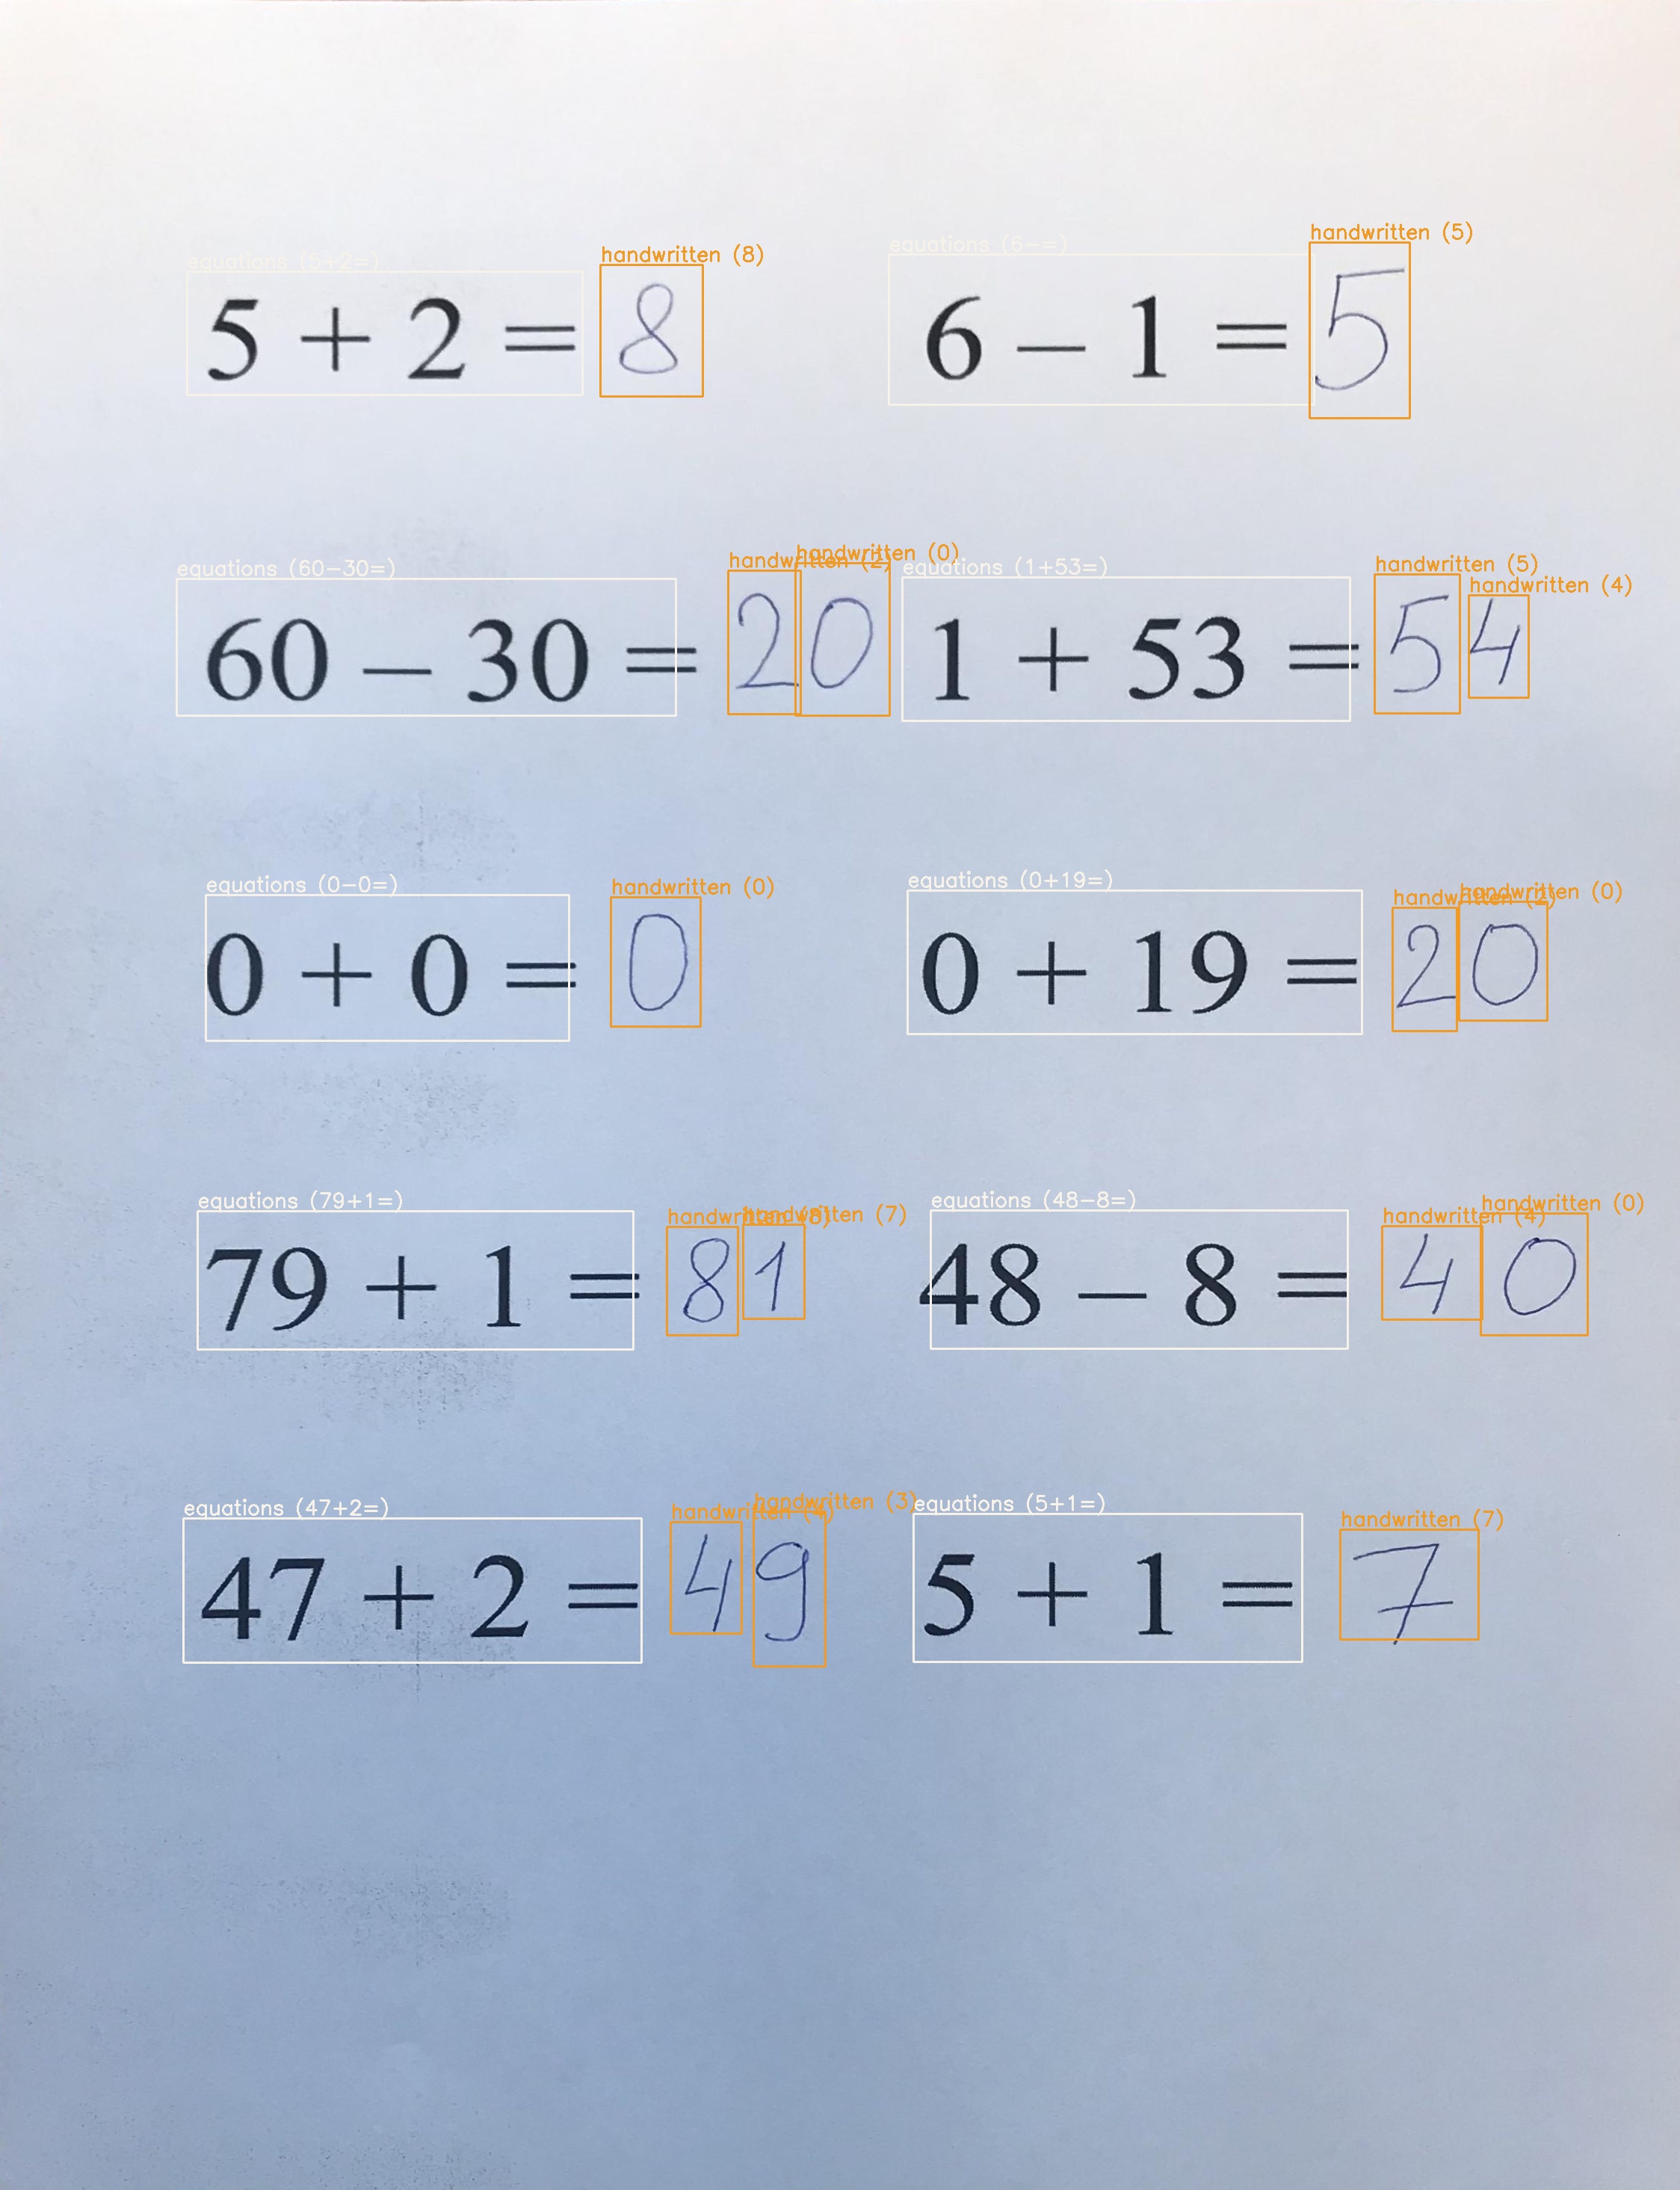 handwritten (5)
equations (5+2=) handwritten (8) equations (6-=)
5 + 2 = 8 6 – 1 = 5
equations (60-30=) handwritten (2) handwritten (0) equations (1+53=) handwritten (5) handwritten (4)
60 – 30 = 20 1 + 53 = 54
equations (0-0=) handwritten (0) equations (0+19=) handwritten (2) handwritten (0)
0 + 0 = 0 0 + 19 = 20
equations (79+1=) handwritten (8) handwritten (7) equations (48-8=) handwritten (4) handwritten (0)
79 + 1 = 81 48 – 8 = 40
equations (47+2=) handwritten (4) handwritten (3) equations (5+1=) handwritten (7)
47 + 2 = 49 5 + 1 = 7